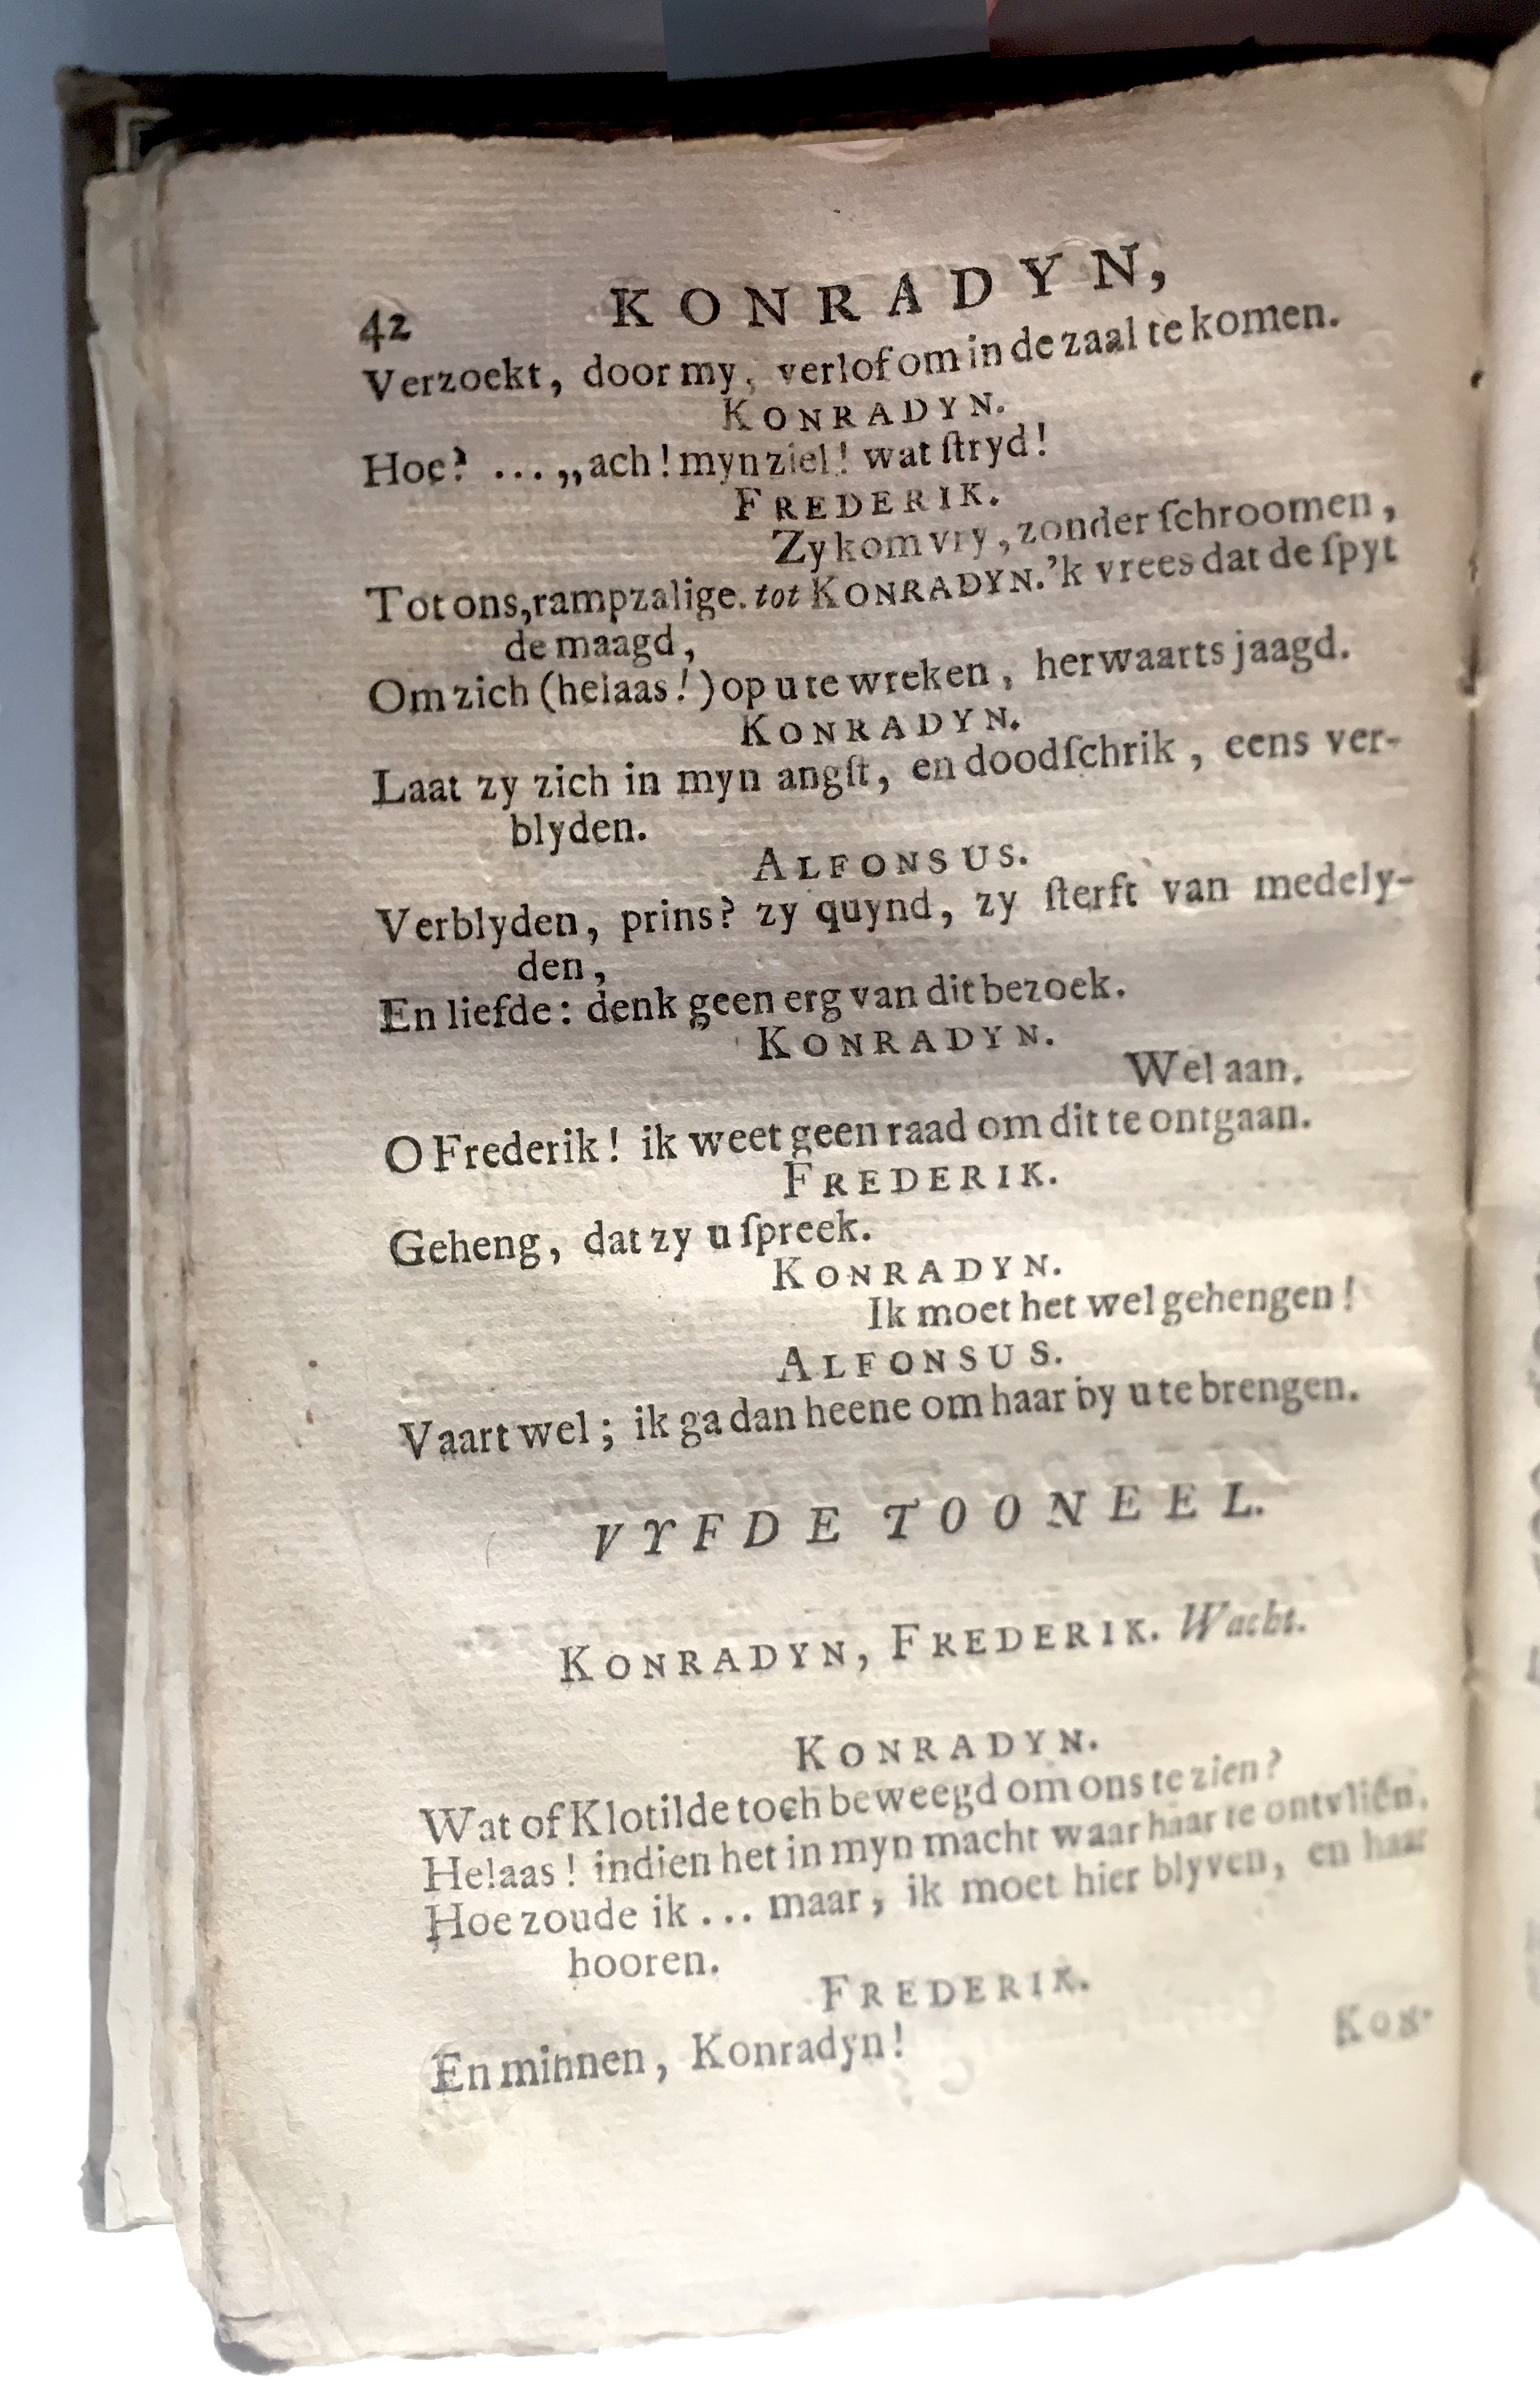 42 KONRADYN,
Verzoekt, door my, verlof om in de zaal te komen.
KONRADYN.
Hoe? ... „ach! myn ziel! wat ſtryd!
FREDERIK.
Zy kom vry, zonder ſchroomen,
Tot ons, rampzalige. tot KONRADYN. 'k vrees dat de ſpyt
de maagd,
Om zich (helaas!) op u te wreken, herwaarts jaagd.
KONRADYN.
Laat zy zich in myn angſt, en doodſchrik, eens ver-
blyden.
ALFONSUS.
Verblyden, prins? zy quynd, zy ſterft van medely-
den,
En liefde: denk geen erg van dit bezoek.
KONRADYN.
Wel aan.
O Frederik! ik weet geen raad om dit te ontgaan.
FREDERIK.
Geheng, dat zy u ſpreek.
KONRADYN.
Ik moet het wel gehengen!
ALFONSUS.
Vaart wel; ik ga dan heene om haar by u te brengen.
VYFDE TOONEEL.
KONRADYN, FREDERIK. Wacht.
KONRADYN.
Wat of Klotilde toch beweegd om ons te zien?
Helaas! indien het in myn macht waar haar te ontvliên,
Hoe zoude ik ... maar, ik moet hier blyven, en haar
hooren.
FREDERIK.
En minnen, Konradyn!
KON-